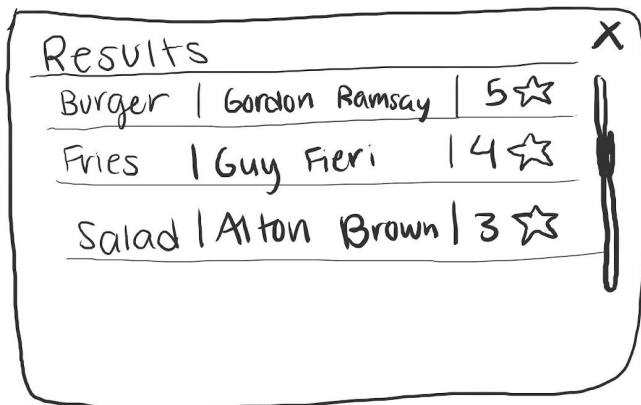 Results X
Burger | Gordon Ramsay | 5☆
Fries | Guy Fieri | 4☆
Salad | Alton Brown | 3☆